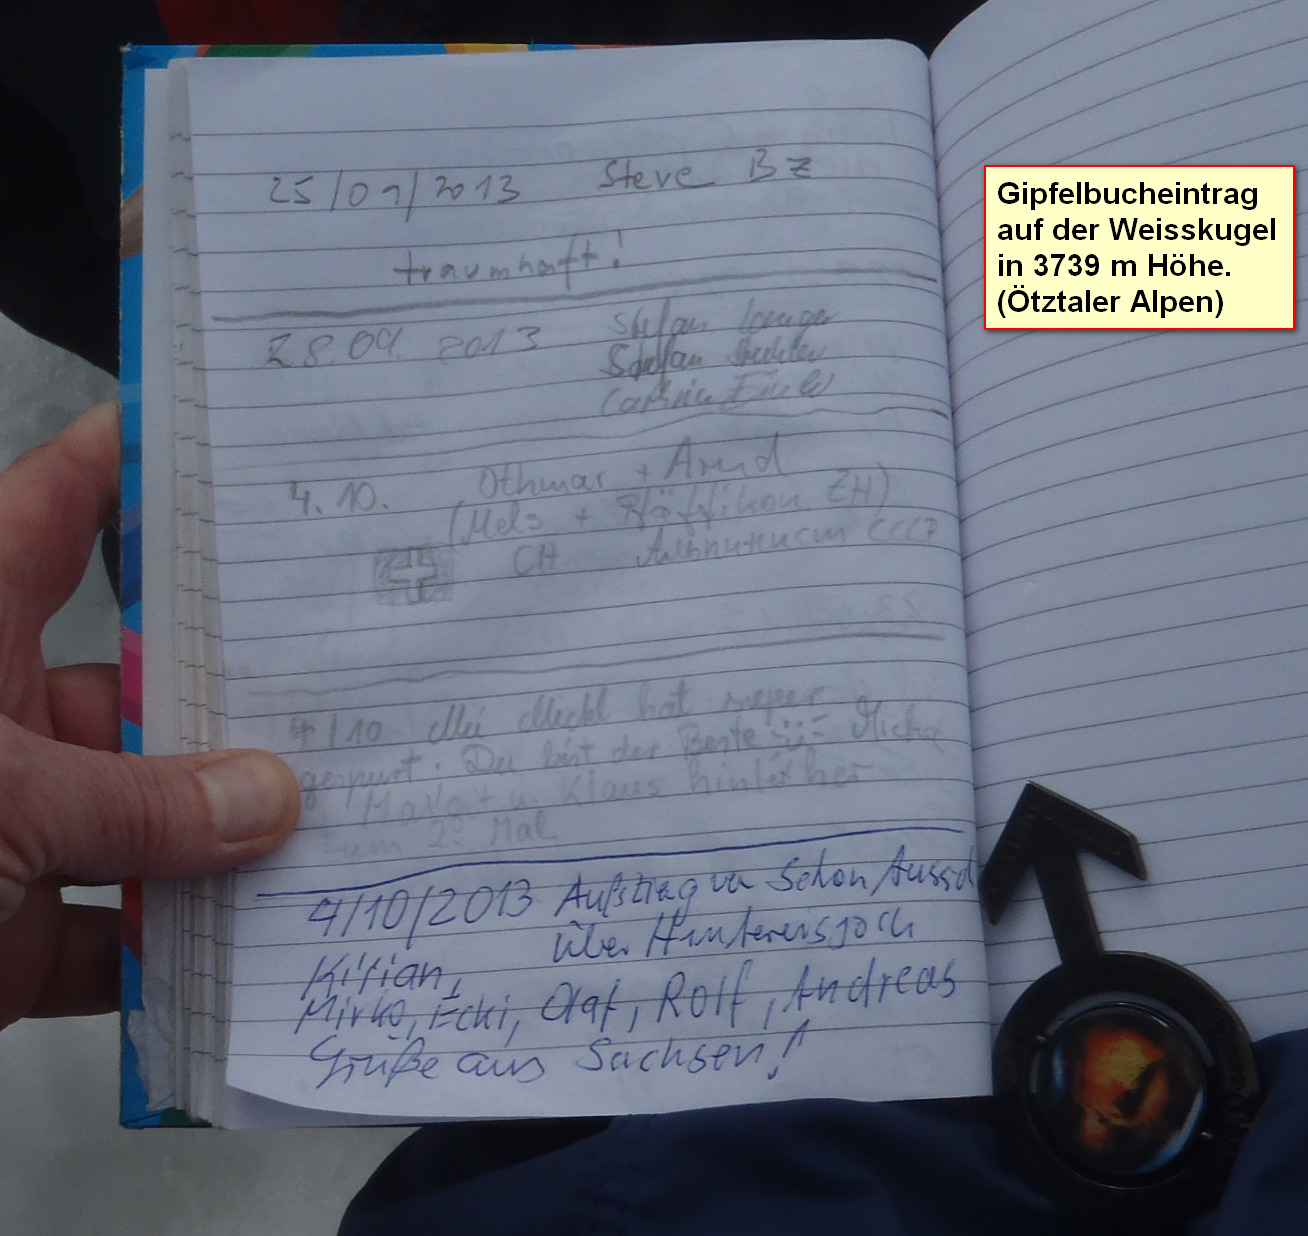 25/09/2013 Steve Bz
traumhaft!
28.09. 2013 Stefan
Stefan
4.10. Othmar + Arnd
(Mels + Pfäffikon ZH)
CH Альпинист СССР
4/10 Mei Meckl hat super
gespurt. Du bist der Beste Micha
Margit u. Klaus hinterher
zum 2. Mal
4/10/2013 Aufstieg von Schön Aussi
über Hintereisjoch
Kilian,
Mirko, Ecki, Olaf, Rolf, Andreas
Grüße aus Sachsen!
Gipfelbucheintrag
auf der Weisskugel
in 3739 m Höhe.
(Ötztaler Alpen)